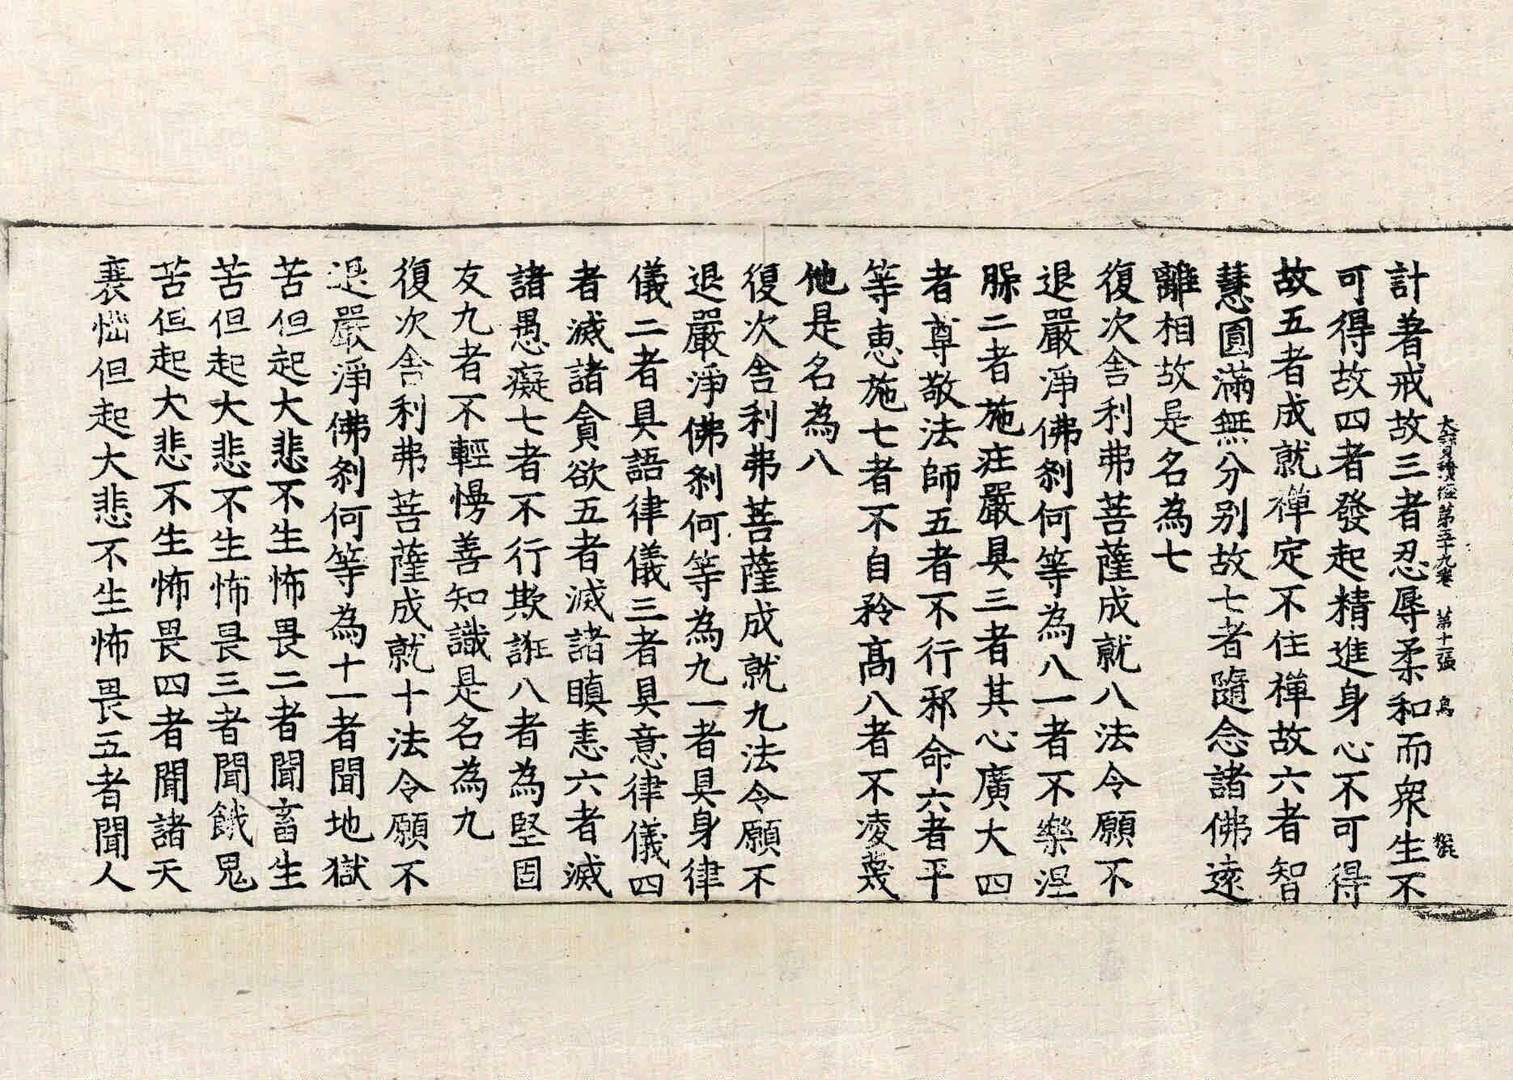 大寶積經第五十九卷 第十二張 鳥
計著戒故三者忍辱柔和而衆生不
可得故四者發起精進身心不可得
故五者成就禪定不住禪故六者智
慧圓滿無分别故七者隨念諸佛遠
離相故是名為七
復次舍利弗菩薩成就八法令願不
退嚴淨佛刹何等為八一者不樂涅
二者施庄嚴具三者其心廣大四
者尊敬法師五者不行邪命六者平
等恵施七者不自矜髙八者不凌蔑
他是名為八
復次舍利弗菩薩成就九法令願不
退嚴淨佛刹何等為九一者具身律
儀二者具語律儀三者具意律儀四
者滅諸貪欲五者滅諸瞋恚六者滅
諸愚癡七者不行欺誑八者為堅固
友九者不輕慢善知識是名為九
復次舍利弗菩薩成就十法令願不
退嚴淨佛刹何等為十一者聞地獄
苦但起大悲不生怖畏二者聞畜生
苦但起大悲不生怖畏三者聞餓鬼
苦但起大悲不生怖畏四者聞諸天
衰惱但起大悲不生怖畏五者聞人